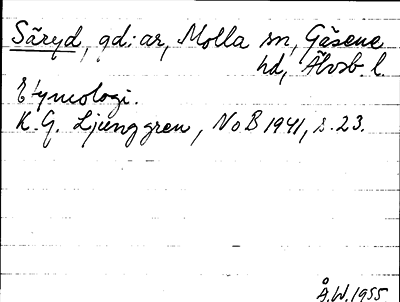 Säryd, gd:ar, Molla sn, Gäsene
hd, Älvsb. l.
Etymologi.
K.G. Ljunggren, NoB 1941, s. 23.
Å.W. 1955